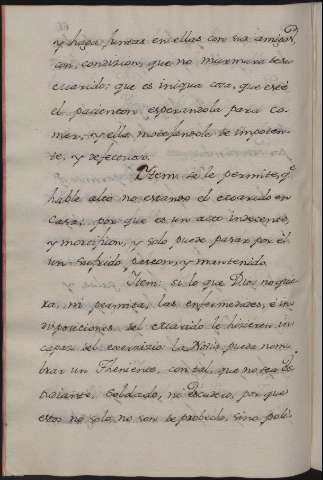 y haga Juntas en ellas con sus amigas,
con condizion, que no murmura de su
cuarido: que es iniqua cosa, que esté
el pacienton esperandola para co-
mer, y ella motejandole de impoten-
te, y defectuoso.
Item se le permite, q.e
hable alto no estando el exarido en
Casa: por que es un acto indecente,
y mortifica, y solo puede pasar por él
un sufrido, y mantenido
Item: si lo que Dios no quie-
ra, ni permita, las enfermedades, e in-
disposiciones del exarido le hicieren in-
capaz del exercizio la Novia pueda nom-
brar un Theniente, con tal, que no sea Es-
tudiante, Soldado, ni Escudero, por que
estos no solo no son de probecho, sino poli-